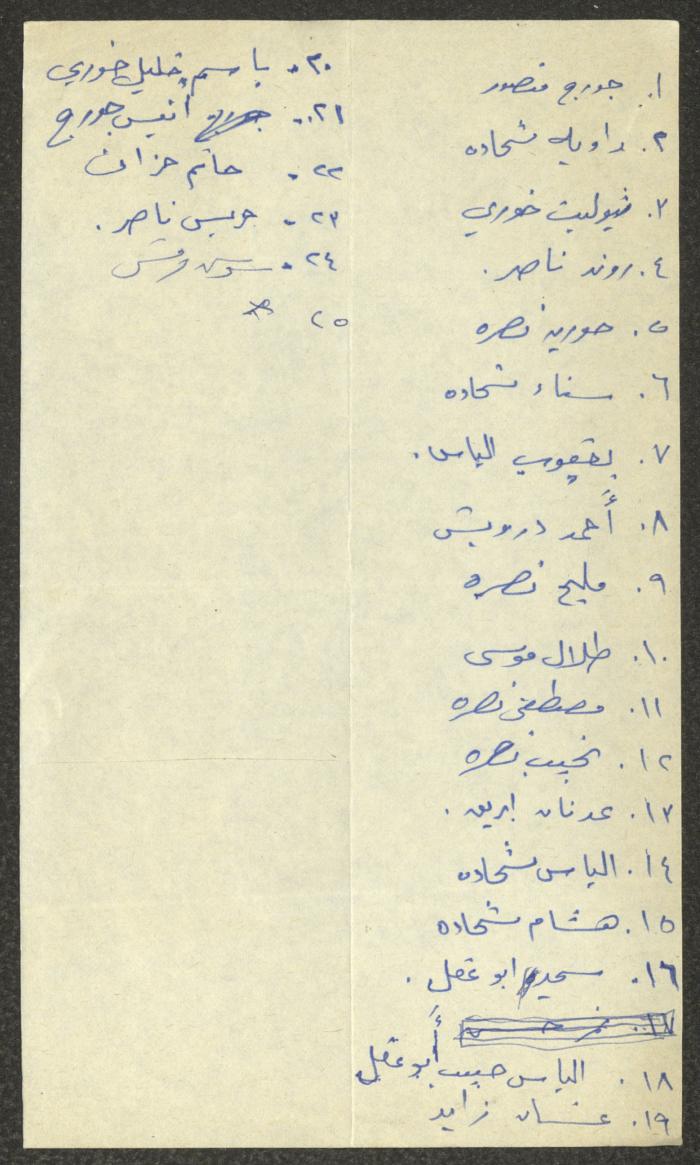 ١. جورج منصور
٢. راويه شحاده
٣. ڤيوليت خوري
٤. روند ناصر.
٥. حوريه نصره
٦. سناء شحاده
٧. يعقوب الياس.
٨. أحمد درويش
٩. مليح نصره
١٠. طلال موسى
١١. مصطفى نصره
١٢. نجيب نصره
١٣. عدنان ابريق.
١٤. الياس شحاده
١٥. هشام شحاده
١٦. سعيد ابو عقل.
١٧.
١٨. الياس حبيب أبو عقل
١٩. غسان زايد
٢٠. باسم خليل خوري
٢١. انيس جورج
٢٢. حاتم حزان
٢٣. جريس ناصر.
٢٤. سوسن
٢٥